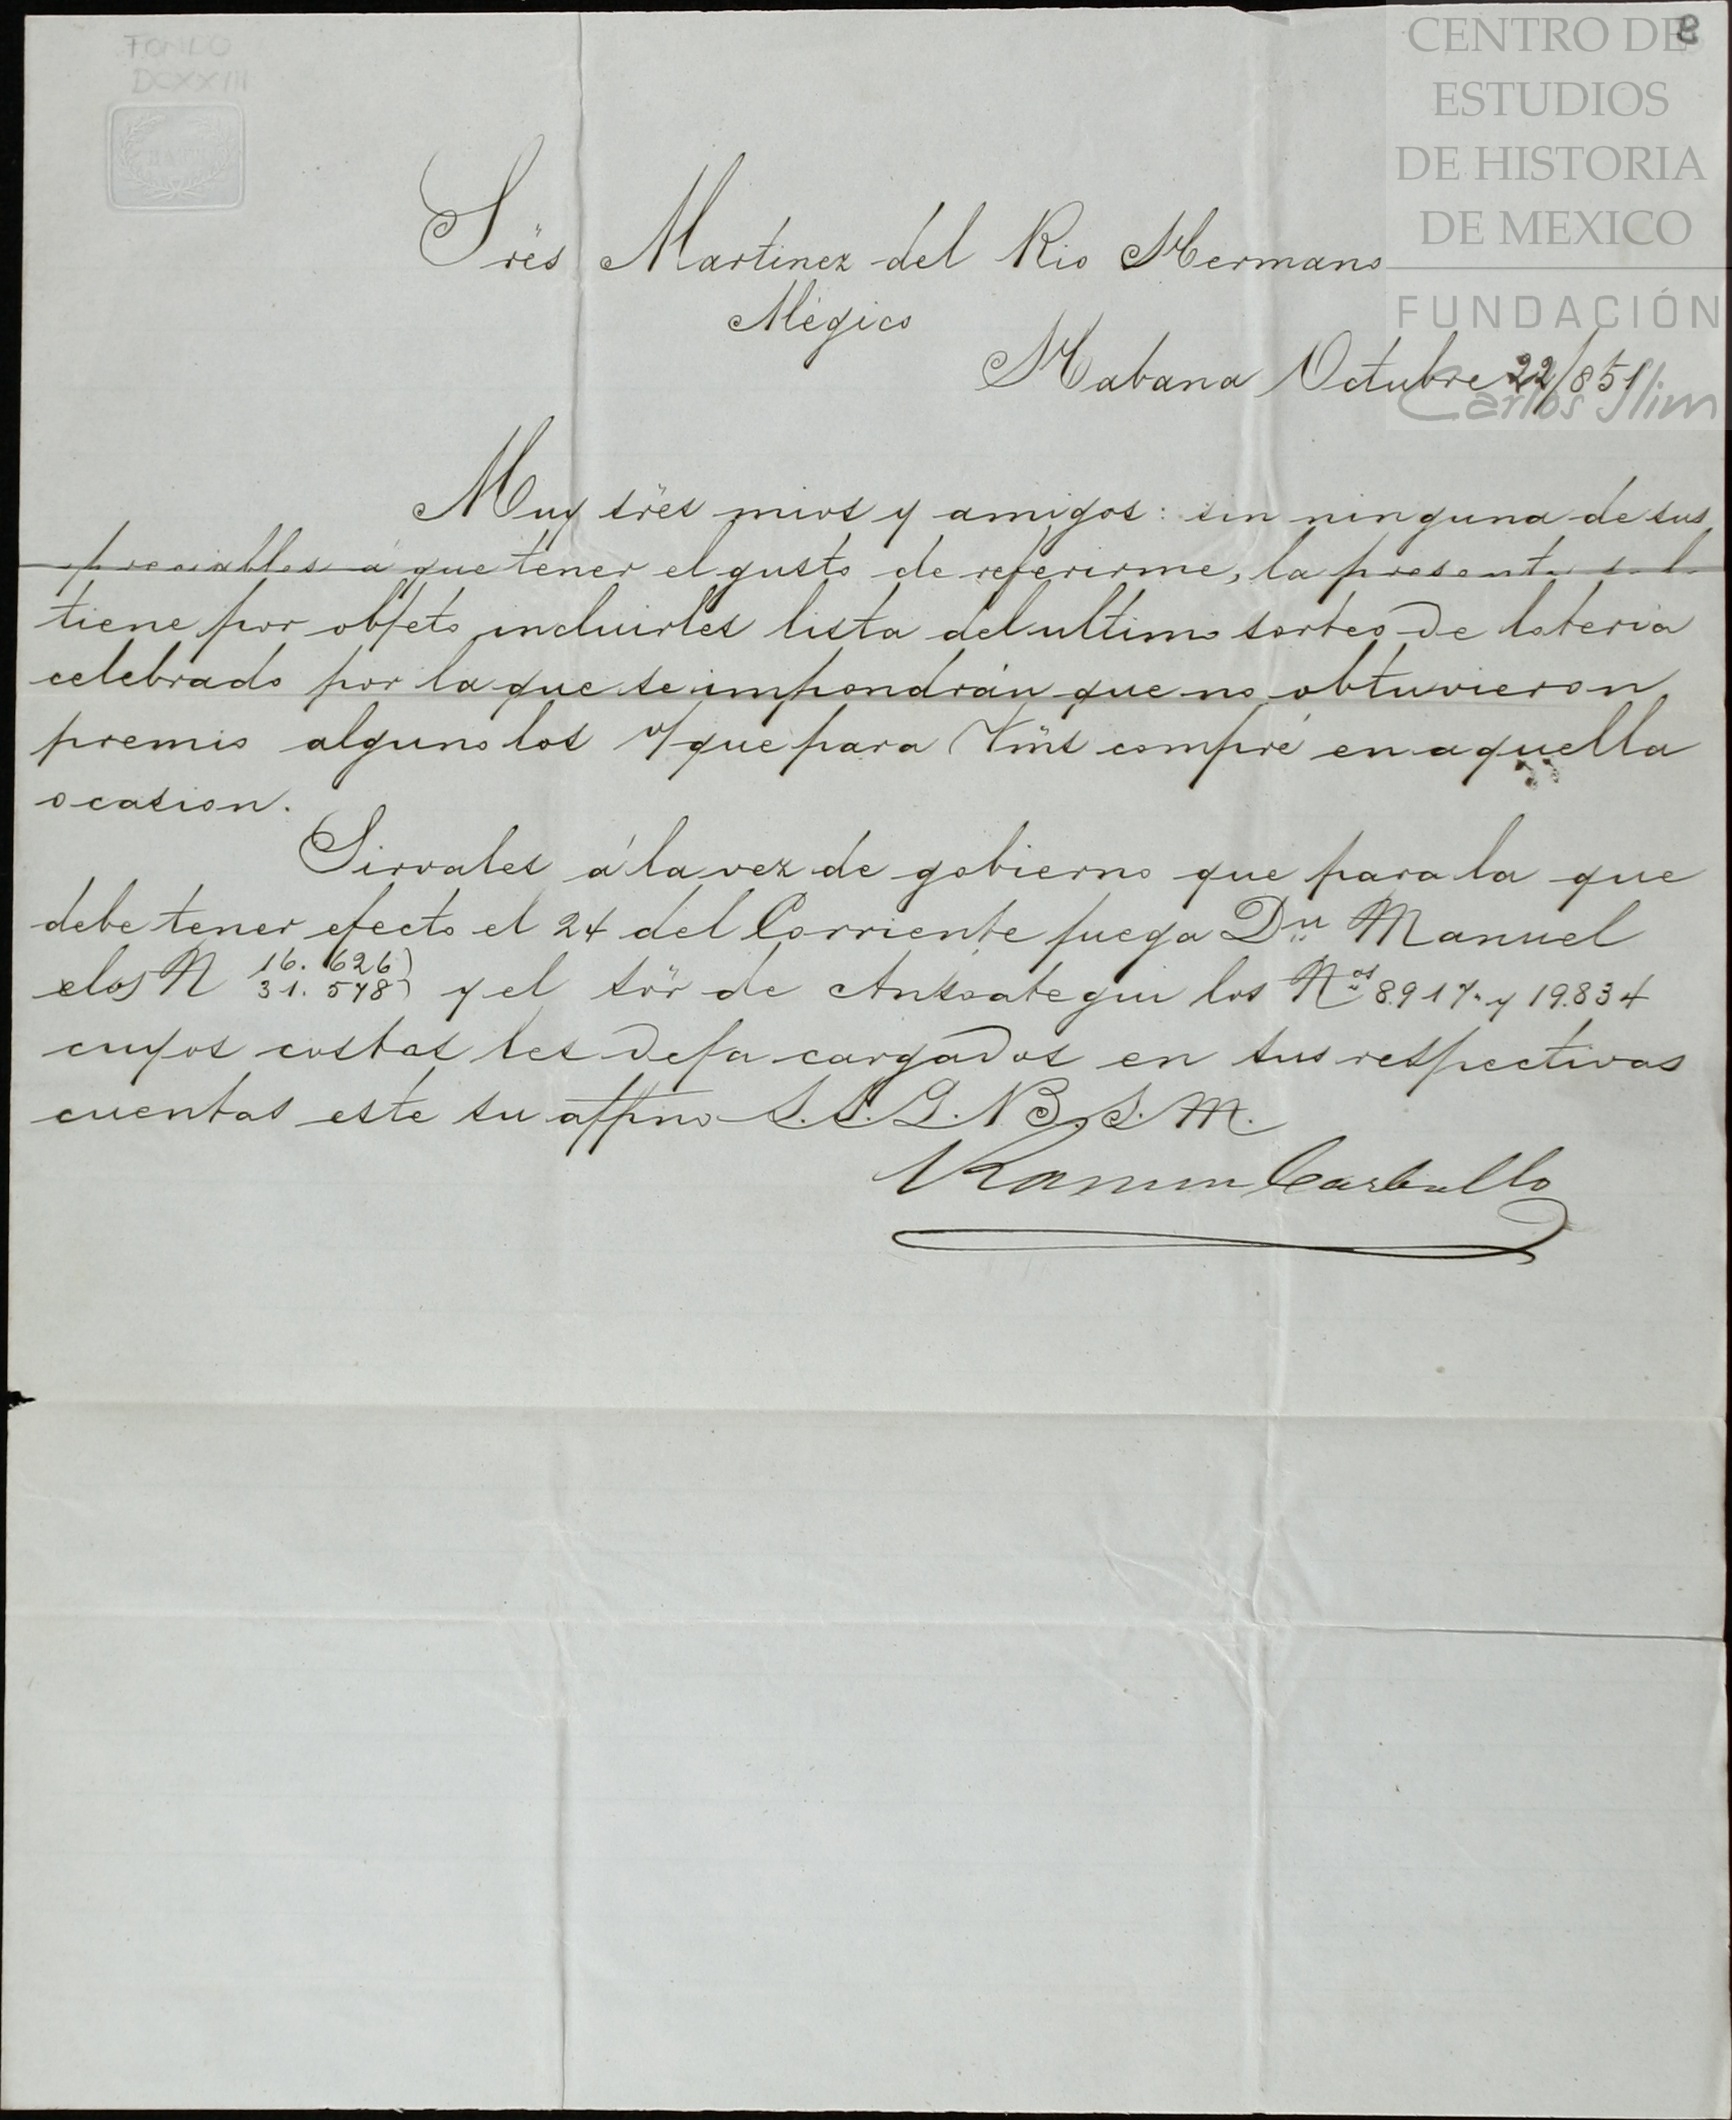 FONDO
DCXXIII
BATH
8
CENTRO DE
ESTUDIOS
DE HISTORIA
DE MEXICO
FUNDACIÓN
Carlos Slim
Srës Martinez del Rio Hermano
Mégico
Habana Octubre 22/851
Muy srës mios y amigos: sin ninguna de sus
preciables á que tener el gusto de referirme, la presente sol
tiene por objeto incluirles lista del ultimo sorteo de loteria
celebrado por la que se impondrán que no obtuvieron
premio alguno los que para Vms compré en aquella
ocasion.
Sirvales á la vez de gobierno que para la que
debe tener efecto el 24 del Corriente juega Dn Manuel
los N 16.626
31.578) y el sör de Ansoategui los Nos 8.917 y 19.834
cuyos costos les deja cargados en sus respectivas
cuentas este su affmo S. S. Q. B. S. M.
Ramon Carballo